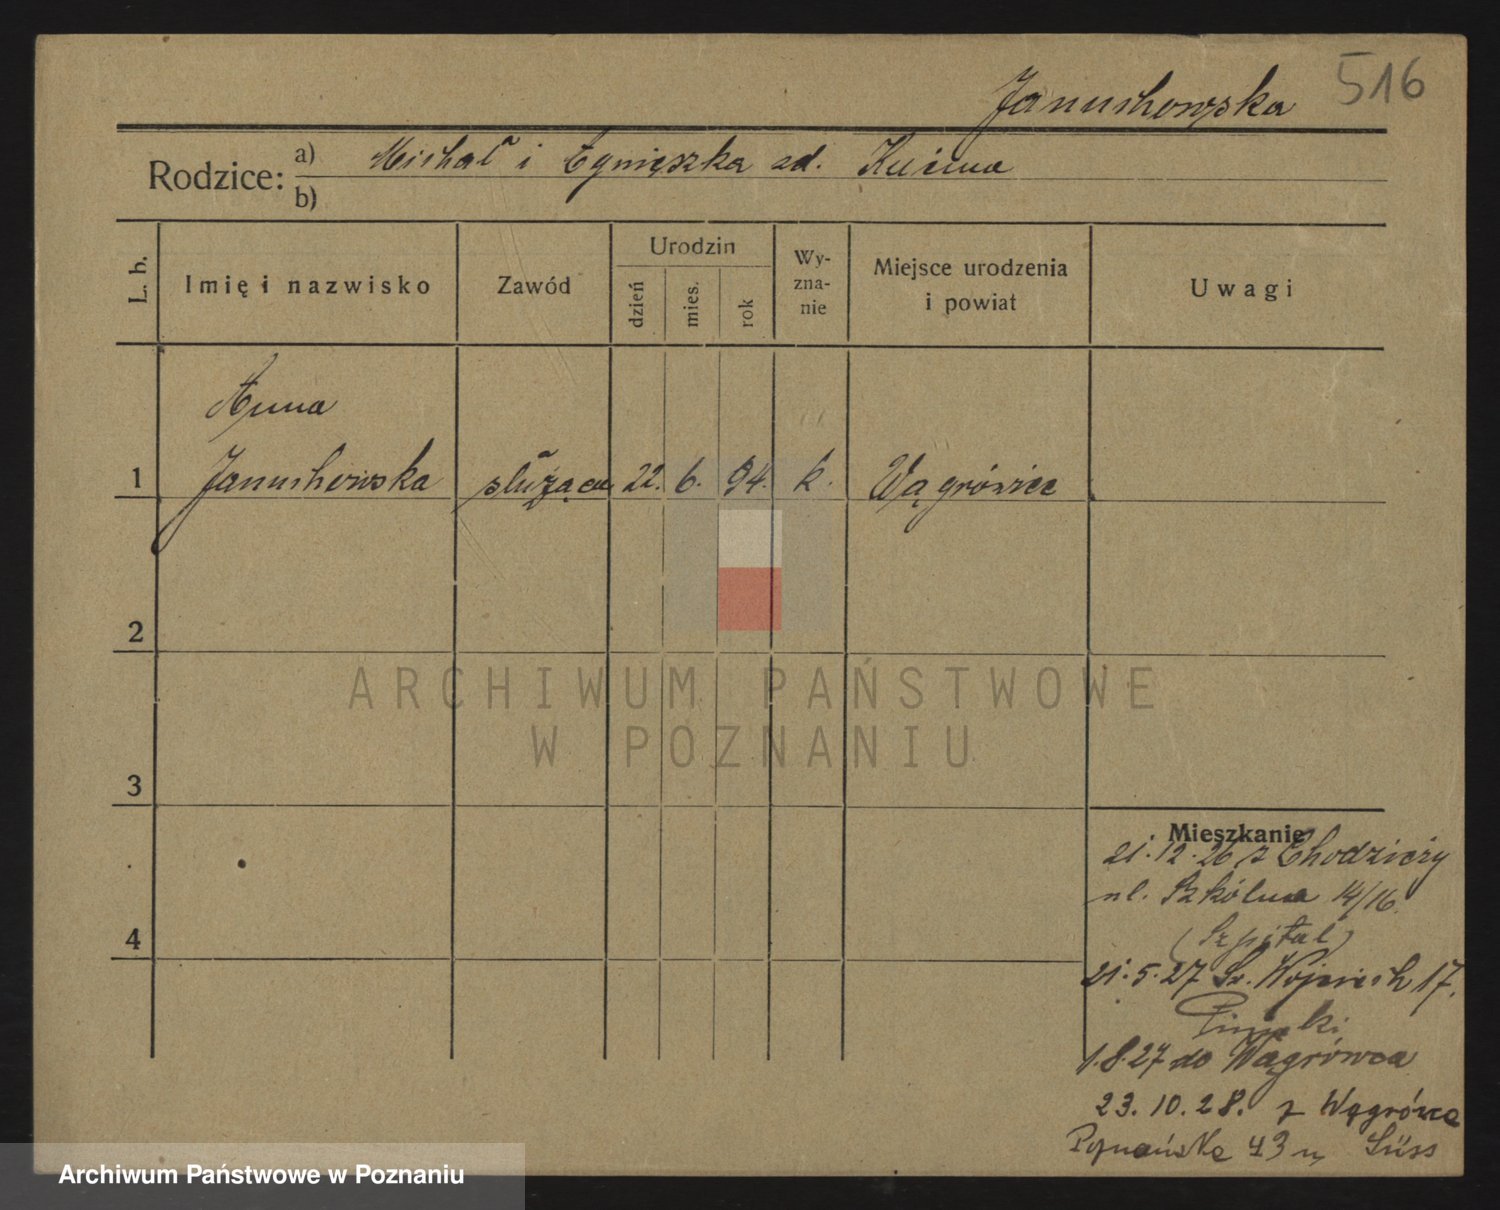 Januchowska 516
Rodzice: a) Michał i Agnieszka zd.
b)
L. b. Imię i nazwisko Zawód Urodzin dzień mies. rok Wyznanie Miejsce urodzenia i powiat Uwagi
Anna
1 Januchowska służąca 22. 6. 94. k. Wągrówiec
2
ARCHIWUM PAŃSTWOWE
W POZNANIU
3
4
Mieszkanie
21.12.26 z Chodzieży
ul. Szkólna 14/16.
(Szpital)
21.5.27 Św. Wojciech 17.
1.8.27 do Wągrówca
23.10.28. z Wągrówca
Poznańska 43 Süss
Archiwum Państwowe w Poznaniu